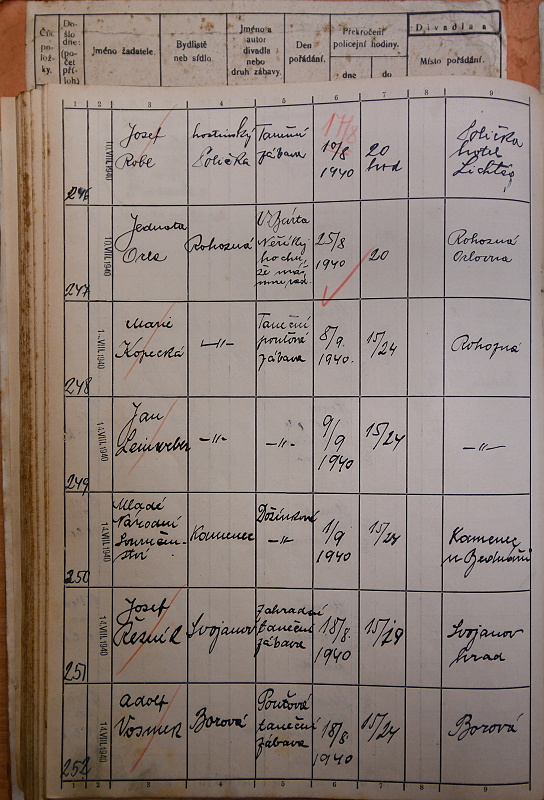 Čís.
po-
lož-
ky.
Do-
šlo
dne:
(po-
čet
pří-
loh)
Jméno žadatele.
Bydliště
neb sídlo.
Jméno a
autor
divadla
nebo
druh zábavy.
Den
pořádání.
Překročení
policejní hodiny.
dne
do
Divadla a
Místo pořádání.
1 2 3 4 5 6 7 8 9
246
Josef
hostinský
Polička
Taneční
zábava
17/8
1940
20
hod
Polička
hotel
247
Jednota
Orla
Rohozná
25/8
1940
20
Rohozná
Orlovna
248
Marie
Kopecká
-"-
Taneční
pouťová
zábava
8/9.
1940.
15/24
Rohozná
249
14.VIII.1940
Jan
Leinweber
-"-
-"-
9/9
1940
15/24
-"-
250
14.VIII.1940
Mladé
Národní
Souručen-
ství
Kamenec
Dožínková
-"-
1/9
1940
15/24
Kamenec
u
251
14.VIII.1940
Josef
Řezník
Svojanov
Zahradní
taneční
zábava
18/8.
1940
Svojanov
hrad
252
14.VIII.1940
Adolf
Borová
Pouťová
taneční
zábava
18/8.
1940
15/24
Borová
1 2 3 4 5 6 7 8 9